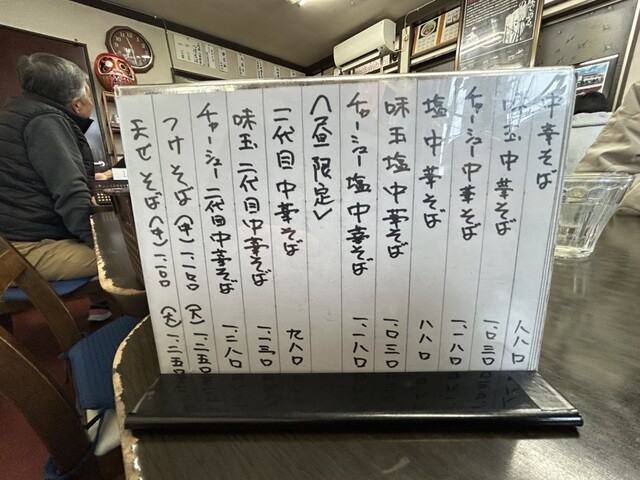 中華そば 八八〇
味玉中華そば 一、〇三〇
チャーシュー中華そば 一、一八〇
塩中華そば 八八〇
味玉塩中華そば 一、〇三〇
チャーシュー塩中華そば 一、一八〇
〈昼限定〉
二代目中華そば 九八〇
味玉二代目中華そば 一、一三〇
チャーシュー二代目中華そば 一、二八〇
つけそば(中)一、一〇〇 (大)一、二五〇
天せそば(中)一、一〇〇 (大)一、二五〇